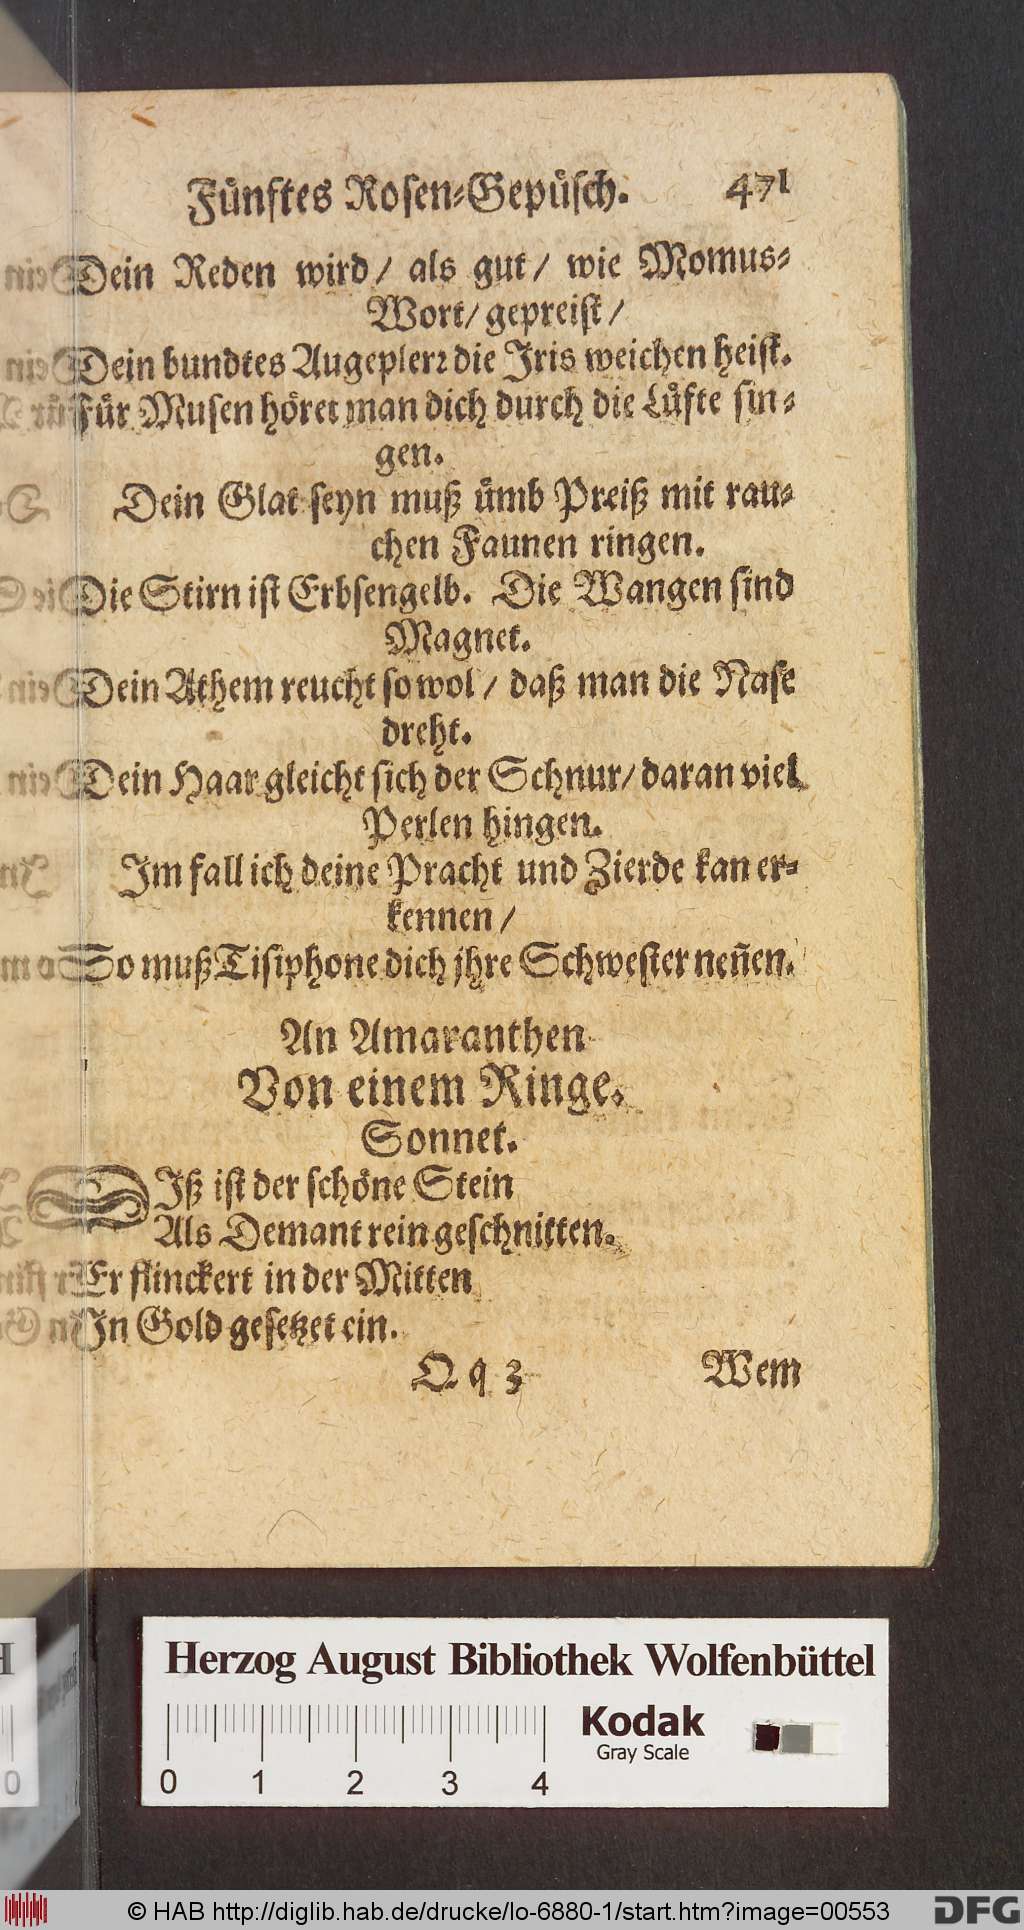 Fünftes Rosen-Gepüsch. 471
Dein Reden wird/ als gut/ wie Momus-
Wort/ gepreist/
Dein bundtes Augeplerr die Iris weichen heist.
Für Musen höret man dich durch die Lüfte sin-
gen.
Dein Glat seyn muß ümb Preiß mit rau-
chen Faunen ringen.
Die Stirn ist Erbsengelb. Die Wangen sind
Magnet.
Dein Athem reucht so wol/ daß man die Nase
dreht.
Dein Haar gleicht sich der Schnur/ daran viel
Perlen hingen.
Im fall ich deine Pracht und Zierde kan er-
kennen/
So muß Tisiphone dich jhre Schwester neñen.
An Amaranthen
Von einem Ringe.
Sonnet.
Iß ist der schöne Stein
Als Demant rein geschnitten.
Er flinckert in der Mitten
In Gold gesetzet ein.
Q q 3 Wem
Herzog August Bibliothek Wolfenbüttel
Kodak
Gray Scale
0 1 2 3 4
© HAB http://diglib.hab.de/drucke/lo-6880-1/start.htm?image=00553
DFG